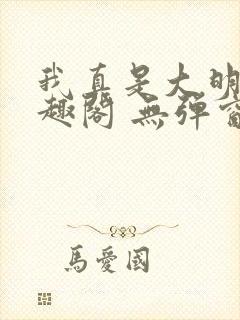 我真是大明
趣閣 無彈窗
馬愛國